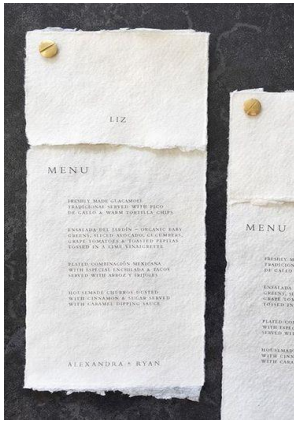 LIZ
MENU
FRESHLY MADE GUACAMOLE
TRADITIONAL SERVED WITH PICO
DE GALLO & WARM TORTILLA CHIPS
ENSALADA DEL JARDIN – ORGANIC BABY
GREENS, SLICED AVOCADO, CUCUMBERS,
GRAPE TOMATOES & TOASTED PEPITAS
TOSSED IN A LIME VINAIGRETTE
PLATED COMBINACIÓN MEXICANA
WITH ESPECIAL ENCHILADA & TACOS
SERVED WITH ARROZ Y FRIJOLES
HOUSEMADE CHURROS DUSTED
WITH CINNAMON & SUGAR SERVED
WITH CARAMEL DIPPING SAUCE
ALEXANDRA + RYAN
MENU
FRESHLY
TRADITION
DE GALLO
ENSALADA
GREENS,
GRAPE
TOSSED IN
PLATED
WITH
SERVED
WITH
WITH